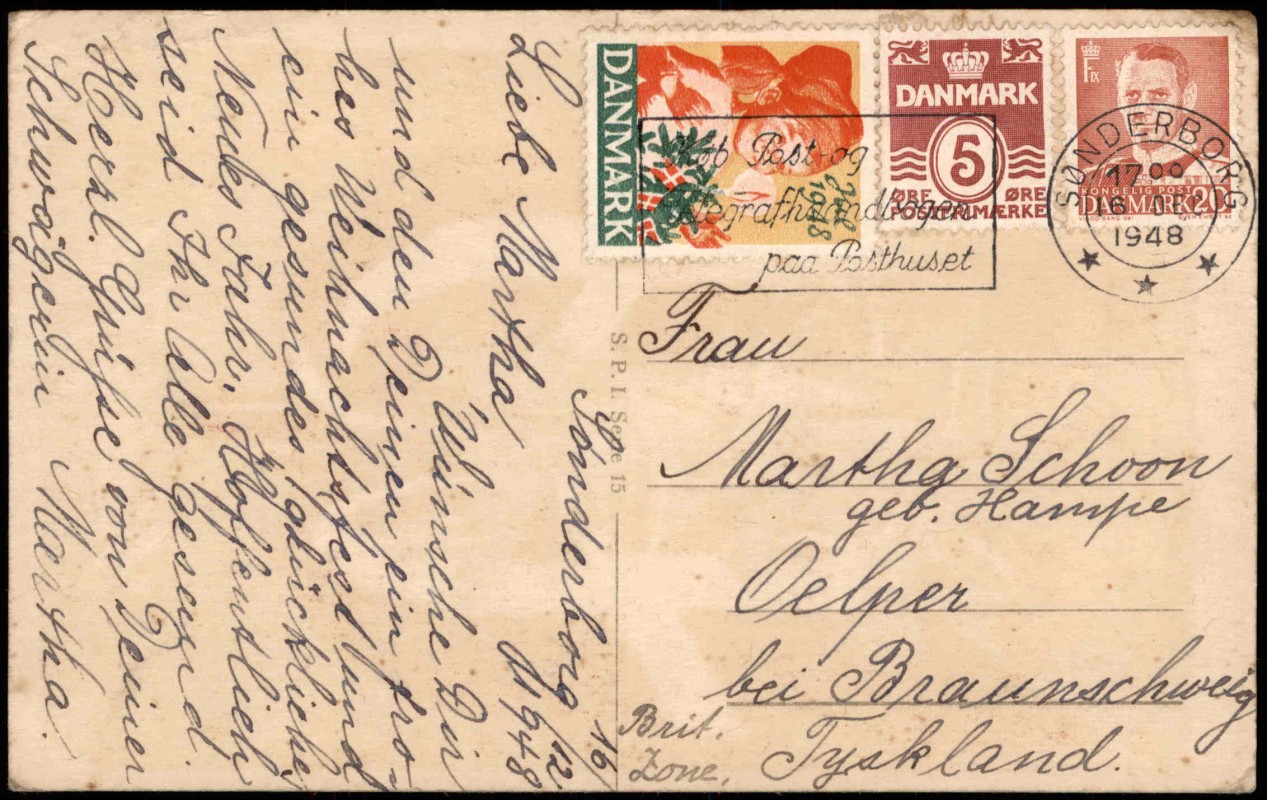 Sönderborg 16/12 1948
Liebe Martha
Wünsche Dir
und den Deinen ein fro-
hes Weihnachtsfest und
ein gesundes, glückliches
Neues Jahr. Hoffentlich
seid Ihr Alle gesund.
Herzl. Grüsse von Deiner
Schwägerin Martha.
S. P. I. Serie 15
DANMARK
Jul
1948
DANMARK
5
ØRE ØRE
POSTFRIMÆRKE
F IX
KONGELIG POST
DANMARK 20
Køb Post- og
Telegrafhaandbogen
paa Posthuset
SØNDERBORG
17 00
16. DE
1948
Frau
Martha Schoon
geb. Hampe
Oelper
bei Braunschweig
Brit.
Zone,
Tyskland.